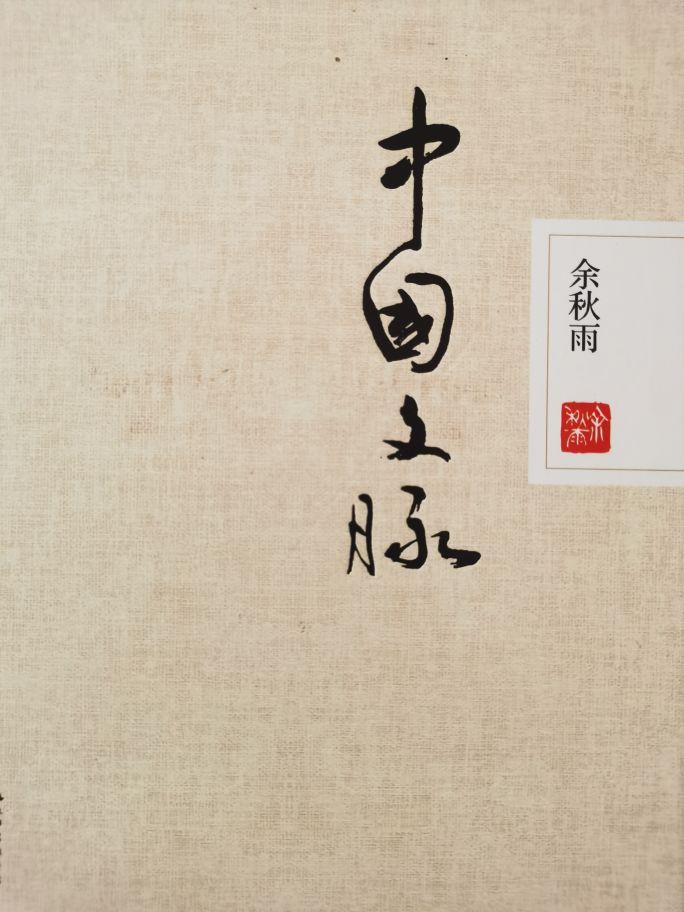 中國文脉
余秋雨
余秋雨